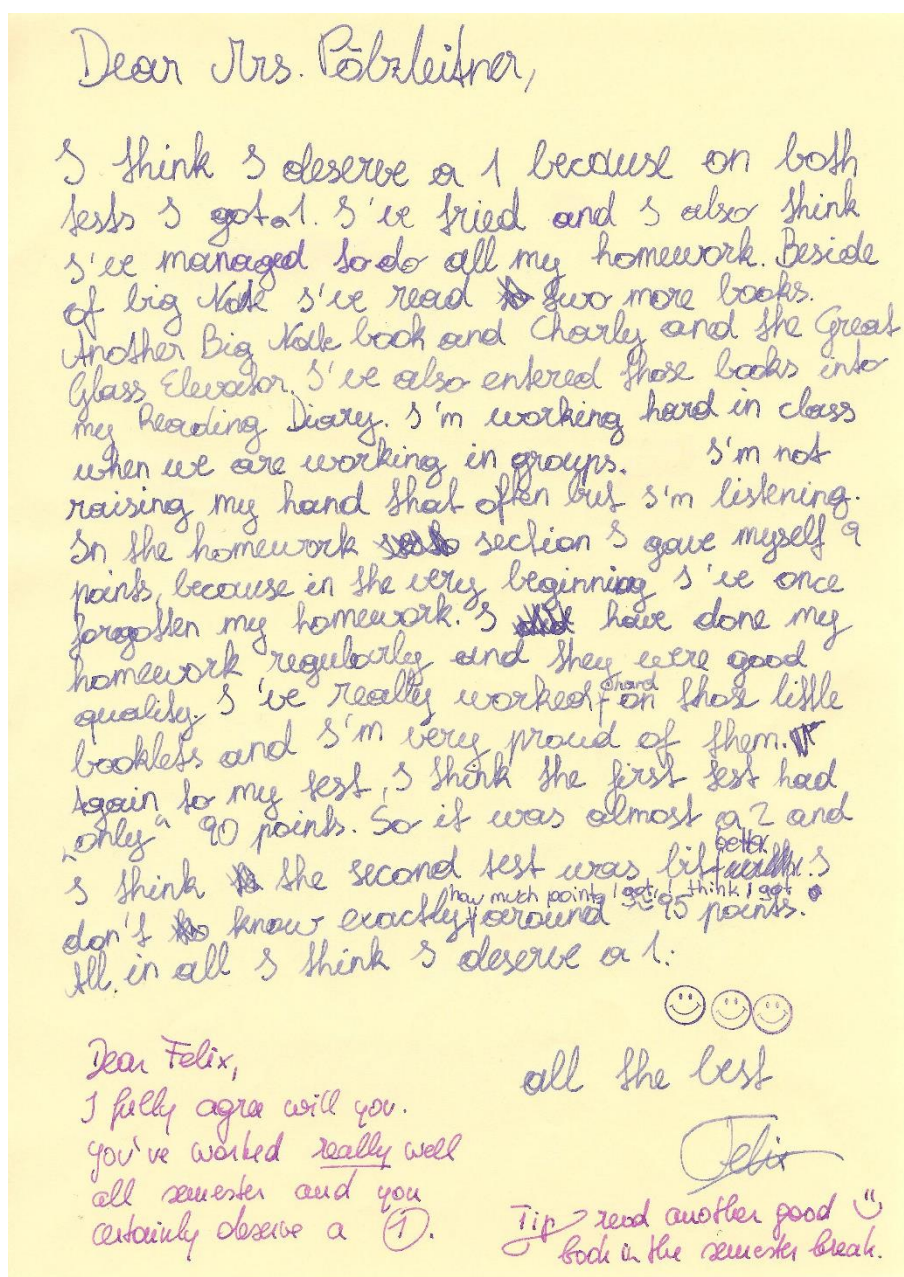 Dear Mrs. Pölzleitner,
I think I deserve a 1 because on both
tests I got a 1. I've tried and I also think
I've managed to do all my homework. Beside
of big Nate I've read two more books.
Another Big Nate book and Charly and the Great
Glass Elevator. I've also entered those books into
my Reading Diary. I'm working hard in class
when we are working in groups. I'm not
raising my hand that often but I'm listening.
In the homework section I gave myself 9
points, because in the very beginning I've once
forgotten my homework. I have done my
homework regularly and they were good
quality. I've really worked hard on those little
booklets and I'm very proud of them.
Again to my test, I think the first test had
„only“ 90 points. So it was almost a 2 and
I think the second test was bit better. I
don't know exactly how much points I got, I think I got around ≈ 95 points.
All in all I think I deserve a 1:
all the best
Felix
Dear Felix,
I fully agree will you.
You've worked really well
all semester and you
certainly deserve a 1.
Tip read another good
book in the semester break.